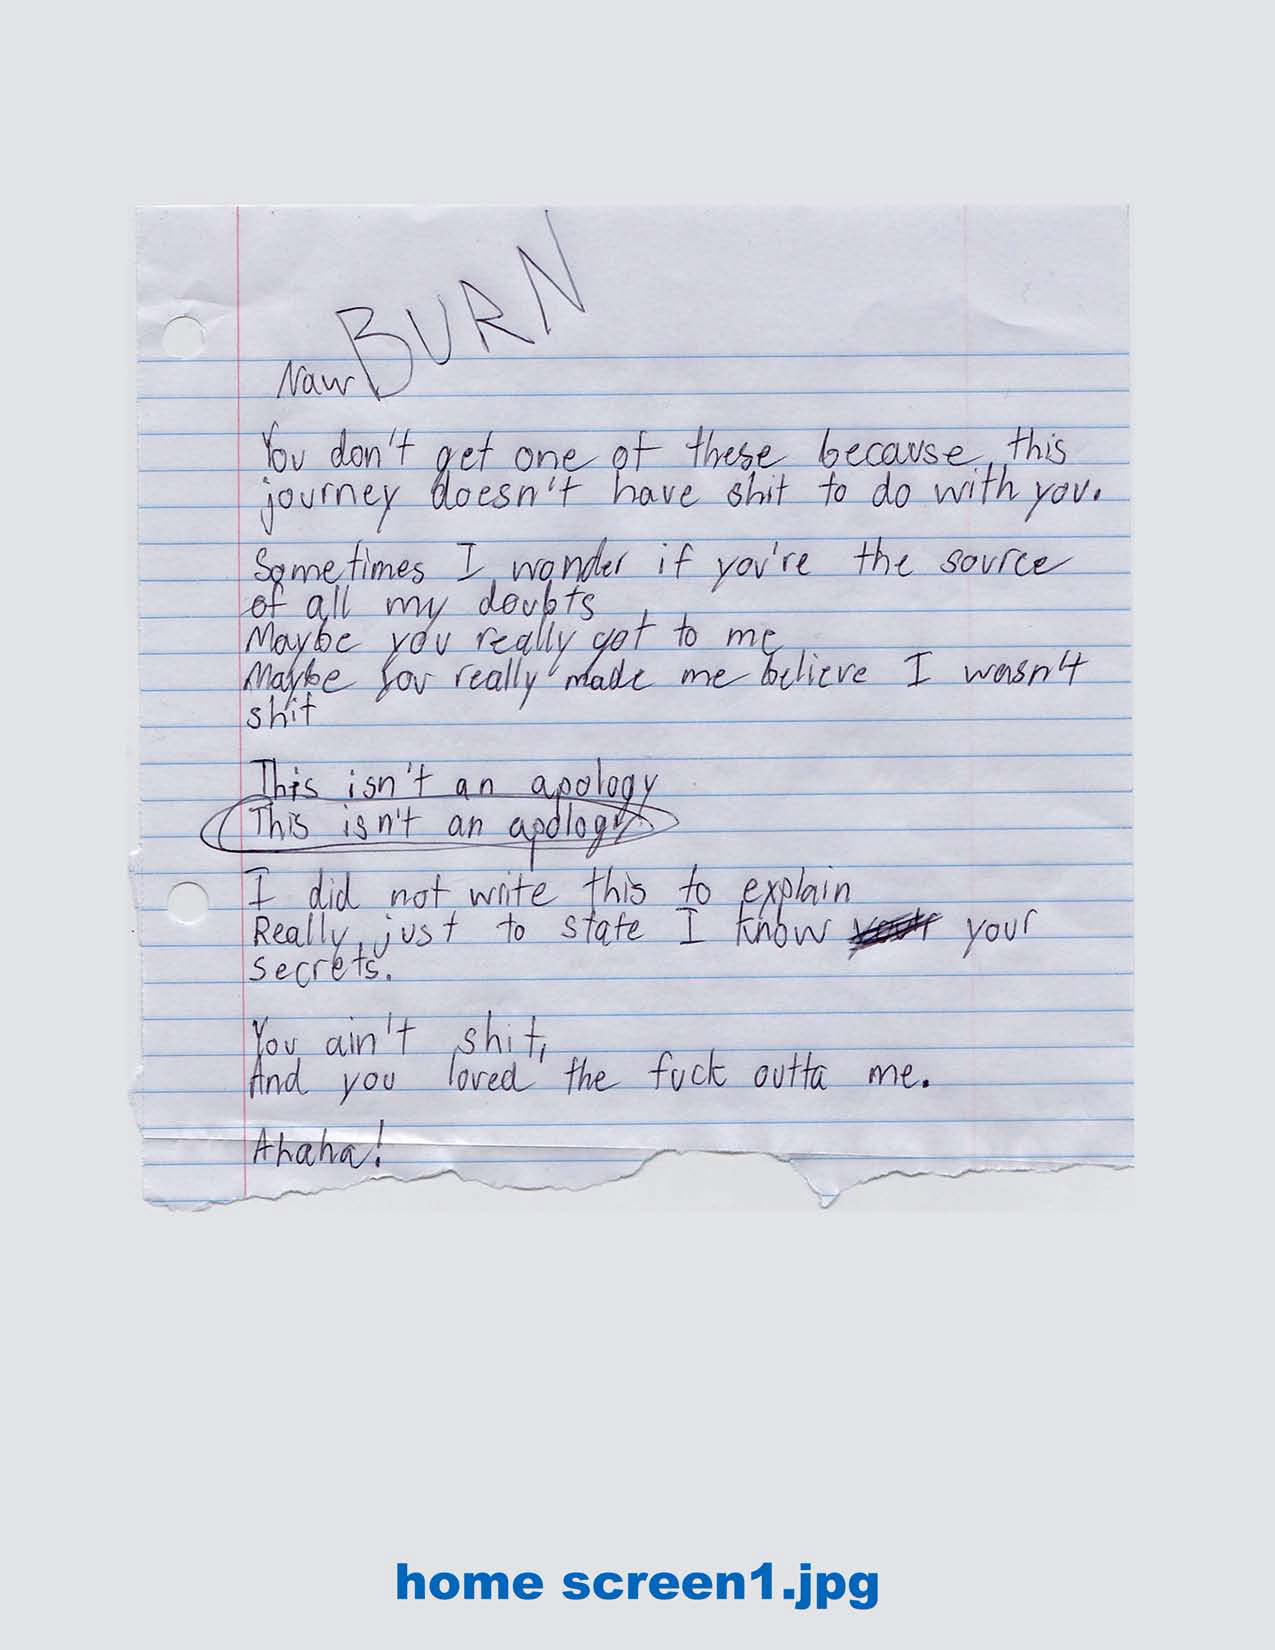 BURN
Naw
You don't get one of these because this
journey doesn't have shit to do with you.
Sometimes I wonder if you're the source
of all my doubts
Maybe you really got to me
Maybe you really made me believe I wasn't
shit
This isn't an apology
This isn't an apology
I did not write this to explain
Really, just to state I know your
secrets.
You ain't shit,
And you loved the fuck outta me.
Ahaha!
home screen1.jpg